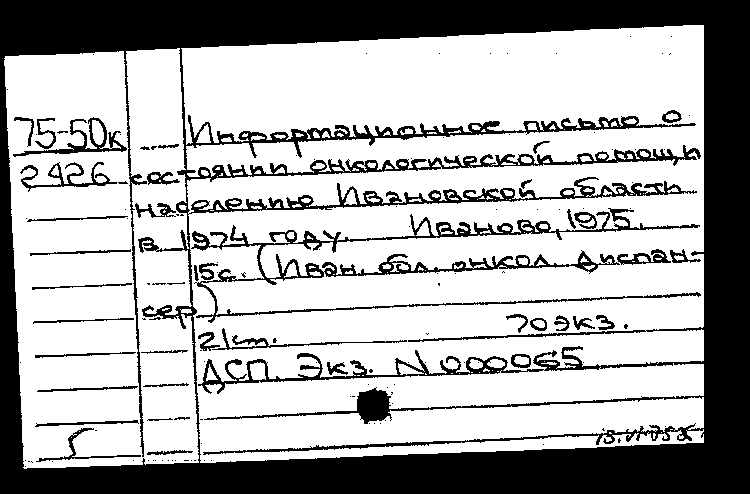 75-50к
2426
Информационное письмо о
состоянии онкологической помощи
населению Ивановской области
в 1974 году. Иваново, 1975.
15с. (Иван. обл. онкол. диспан-
сер).
21см. 70экз.
ДСП. Экз. N 000065